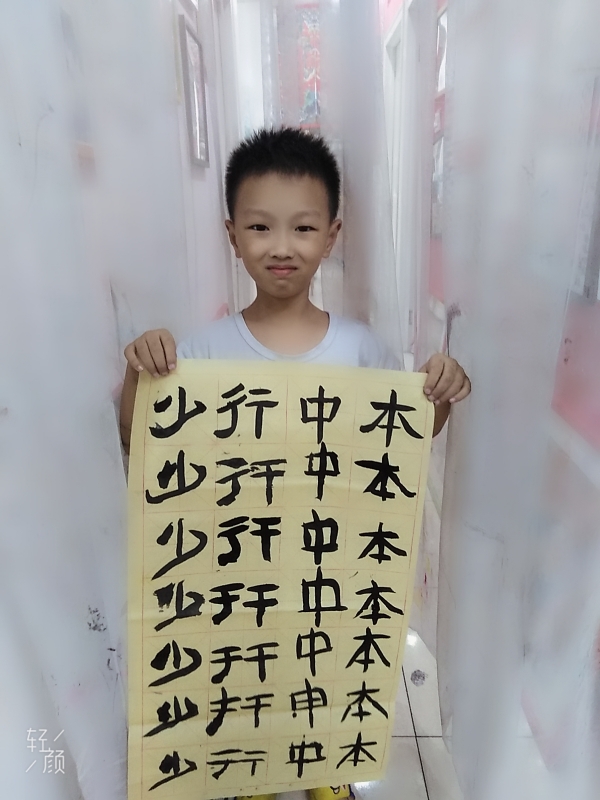 本本本本本本本
中中中中中中中
行行行行行行行
少少少少少少少
轻颜